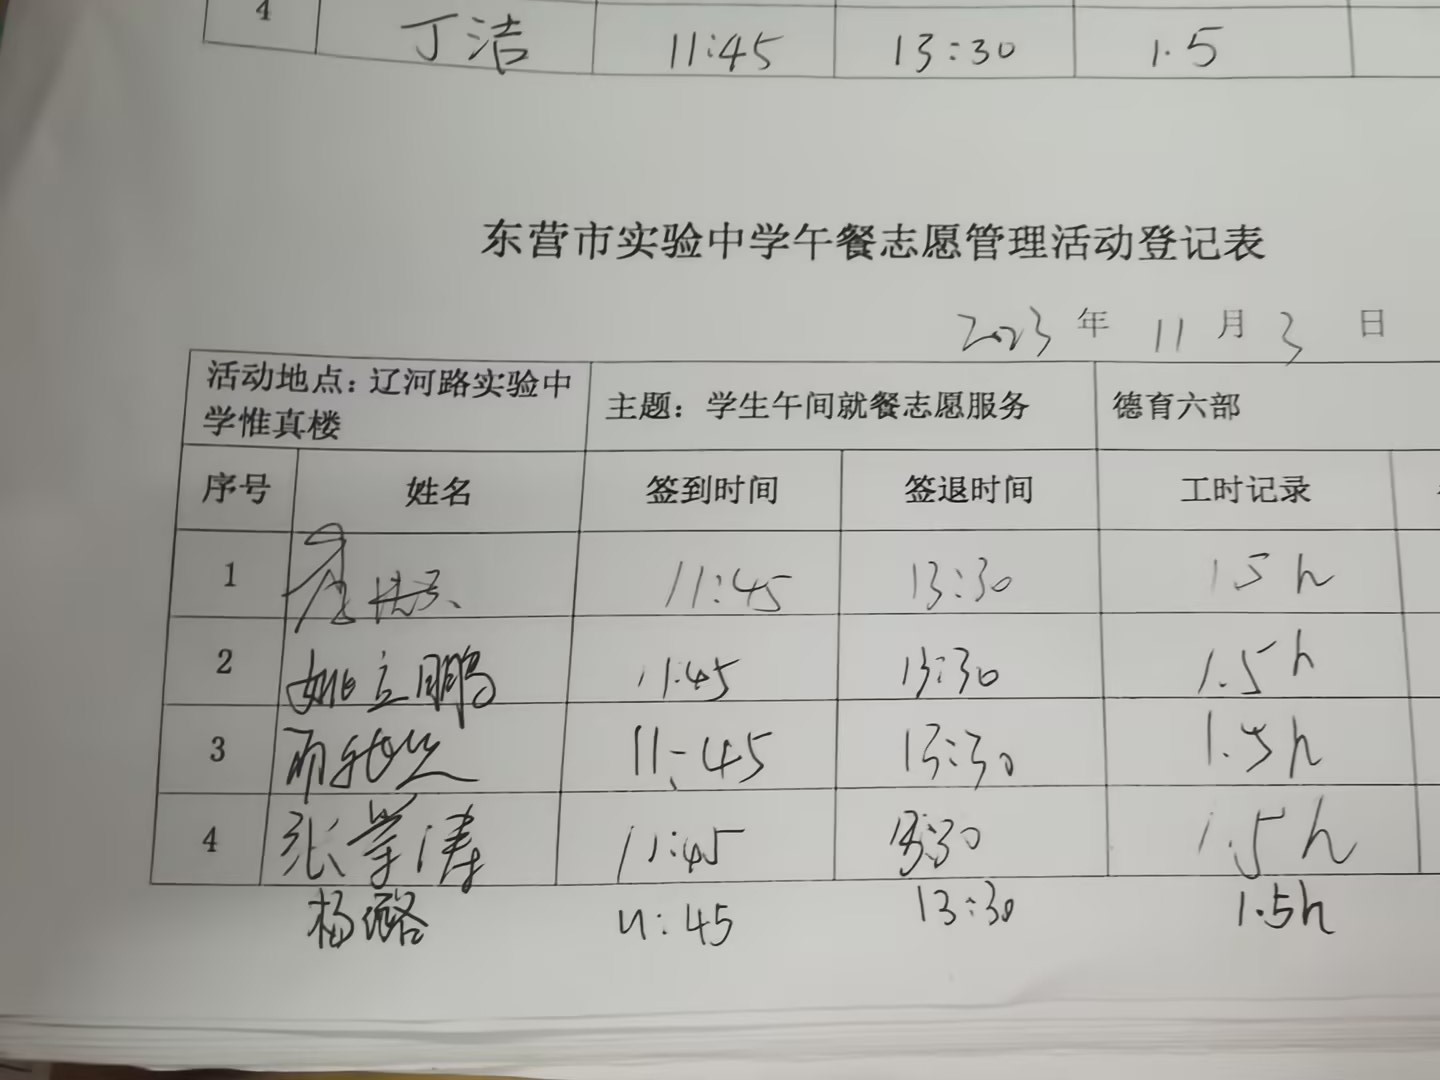 4 丁洁 11:45 13:30 1.5
东营市实验中学午餐志愿管理活动登记表
2023 年 11 月 3 日
活动地点：辽河路实验中学惟真楼 主题：学生午间就餐志愿服务 德育六部
序号 姓名 签到时间 签退时间 工时记录
1 11:45 13:30 1.5h
2 姚立鹏 11:45 13:30 1.5h
3 11:45 13:30 1.5h
4 张学涛 11:45 13:30 1.5h
杨璐 11:45 13:30 1.5h